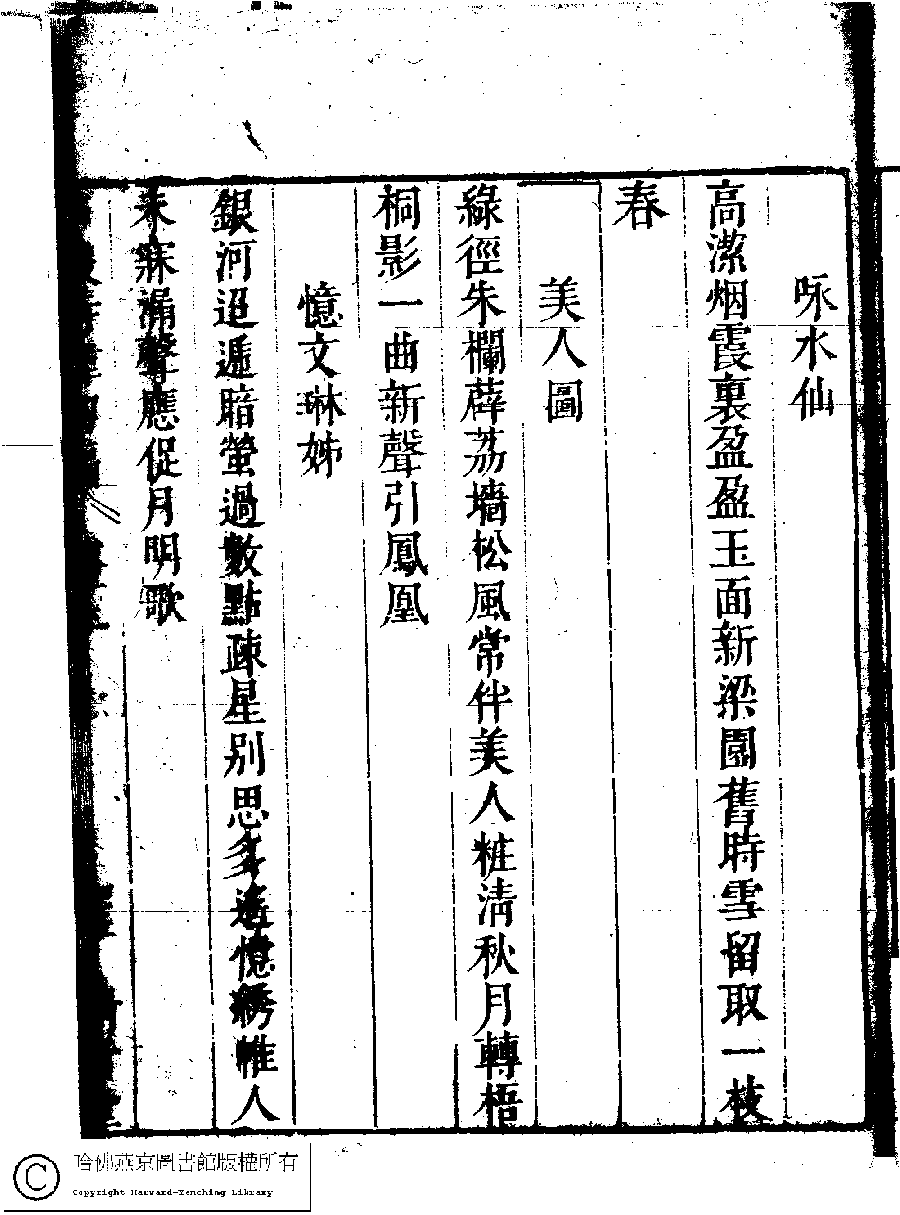 咏水仙
高潔烟霞裏盈盈玉面新梁園舊時雪留取一枝
春
美人圖
綠徑朱欄薜荔墻松風常伴美人粧淸秋月轉梧
桐影一曲新聲引鳳凰
憶文琳姊
銀河迢遞暗螢過數點疎星别思多遙憶綉帷人
未寐漏聲應促月明歌
哈佛燕京圖書館版權所有
Copyright Harvard-Yenching Library